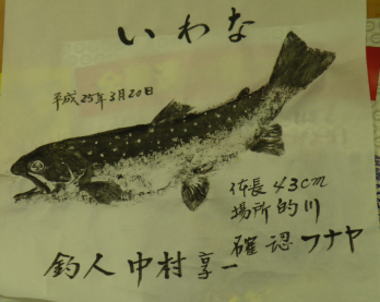 いわな
平成25年3月20日
体長 43cm
場所 的川
確認 フナヤ
釣人 中村享一